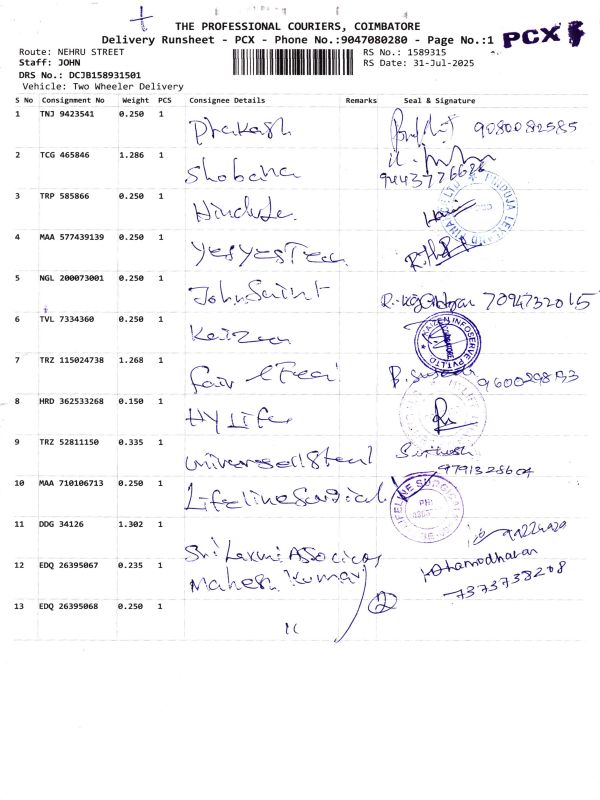 THE PROFESSIONAL COURIERS, COIMBATORE
Delivery Runsheet - PCX - Phone No.:9047080280 - Page No.:1 PCX
Route: NEHRU STREET RS No.: 1589315
Staff: JOHN RS Date: 31-Jul-2025
DRS No.: DCJB158931501
Vehicle: Two Wheeler Delivery
S No Consignment No Weight PCS Consignee Details Remarks Seal & Signature
1 TNJ 9423541 0.250 1 Prakash 9080082585
2 TCG 465846 1.286 1 Shobana
9443776626
3 TRP 585866 0.250 1
4 MAA 577439139 0.250 1
5 NGL 200073001 0.250 1 John Saint 7094732015
6 TVL 7334360 0.250 1 Kaizen KAIZEN INFOSERVE PVT LTD
7 TRZ 115024738 1.268 1
8 HRD 362533268 0.150 1 HY Life
9 TRZ 52811150 0.335 1 universal Steel
9791328604
10 MAA 710106713 0.250 1 Lifeline Surgical LIFELINE SURGICAL
11 DDG 34126 1.302 1 Sri Laxmi Associates
12 EDQ 26395067 0.235 1 Mahesh Kumar Dhamodharan
7373738208
13 EDQ 26395068 0.250 1 " 2